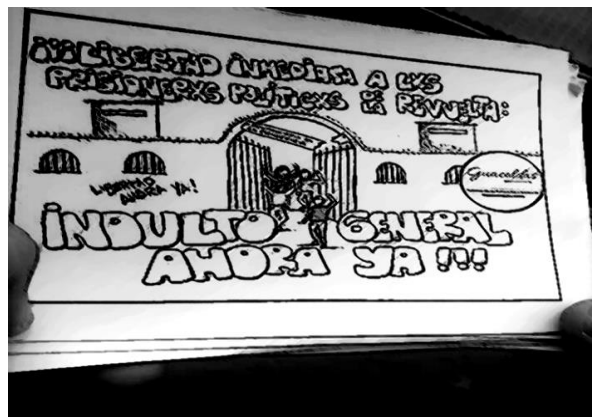 ¡¡¡LIBERTAD INMEDIATA A LXS
PRISIONERXS POLÍTICXS DE LA REVUELTA:
LIBERTAD
AHORA YA!
Guacoldas
INDULTO GENERAL
AHORA YA !!!